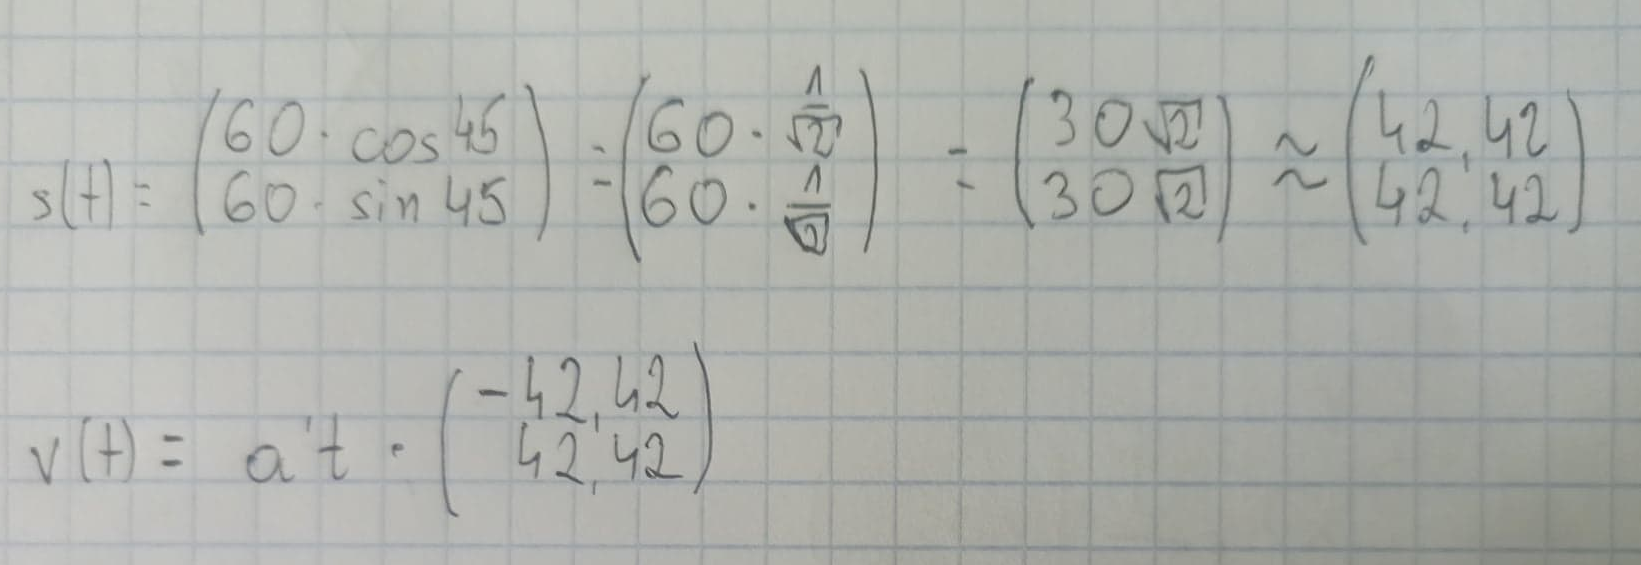 s(t) = (60 · cos 45 60 · sin 45) = (60 · 1/√2 60 · 1/√2) = (30√2 30√2) ≈ (42,42 42,42)
v(t) = a't · (-42,42 42,42)